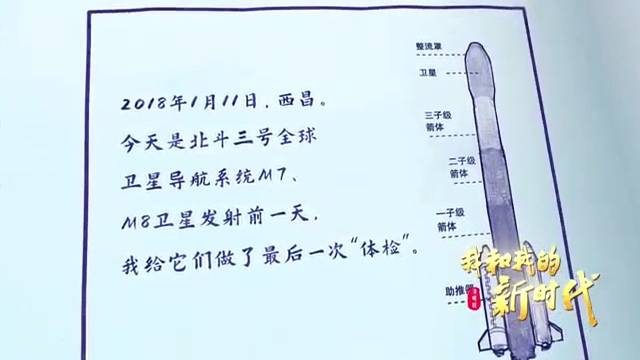 2018年1月11日，西昌。
今天是北斗三号全球
卫星导航系统M7、
M8卫星发射前一天，
我给它们做了最后一次“体检”。
整流罩
卫星
三子级
箭体
二子级
箭体
一子级
箭体
助推器
我和我的
新时代